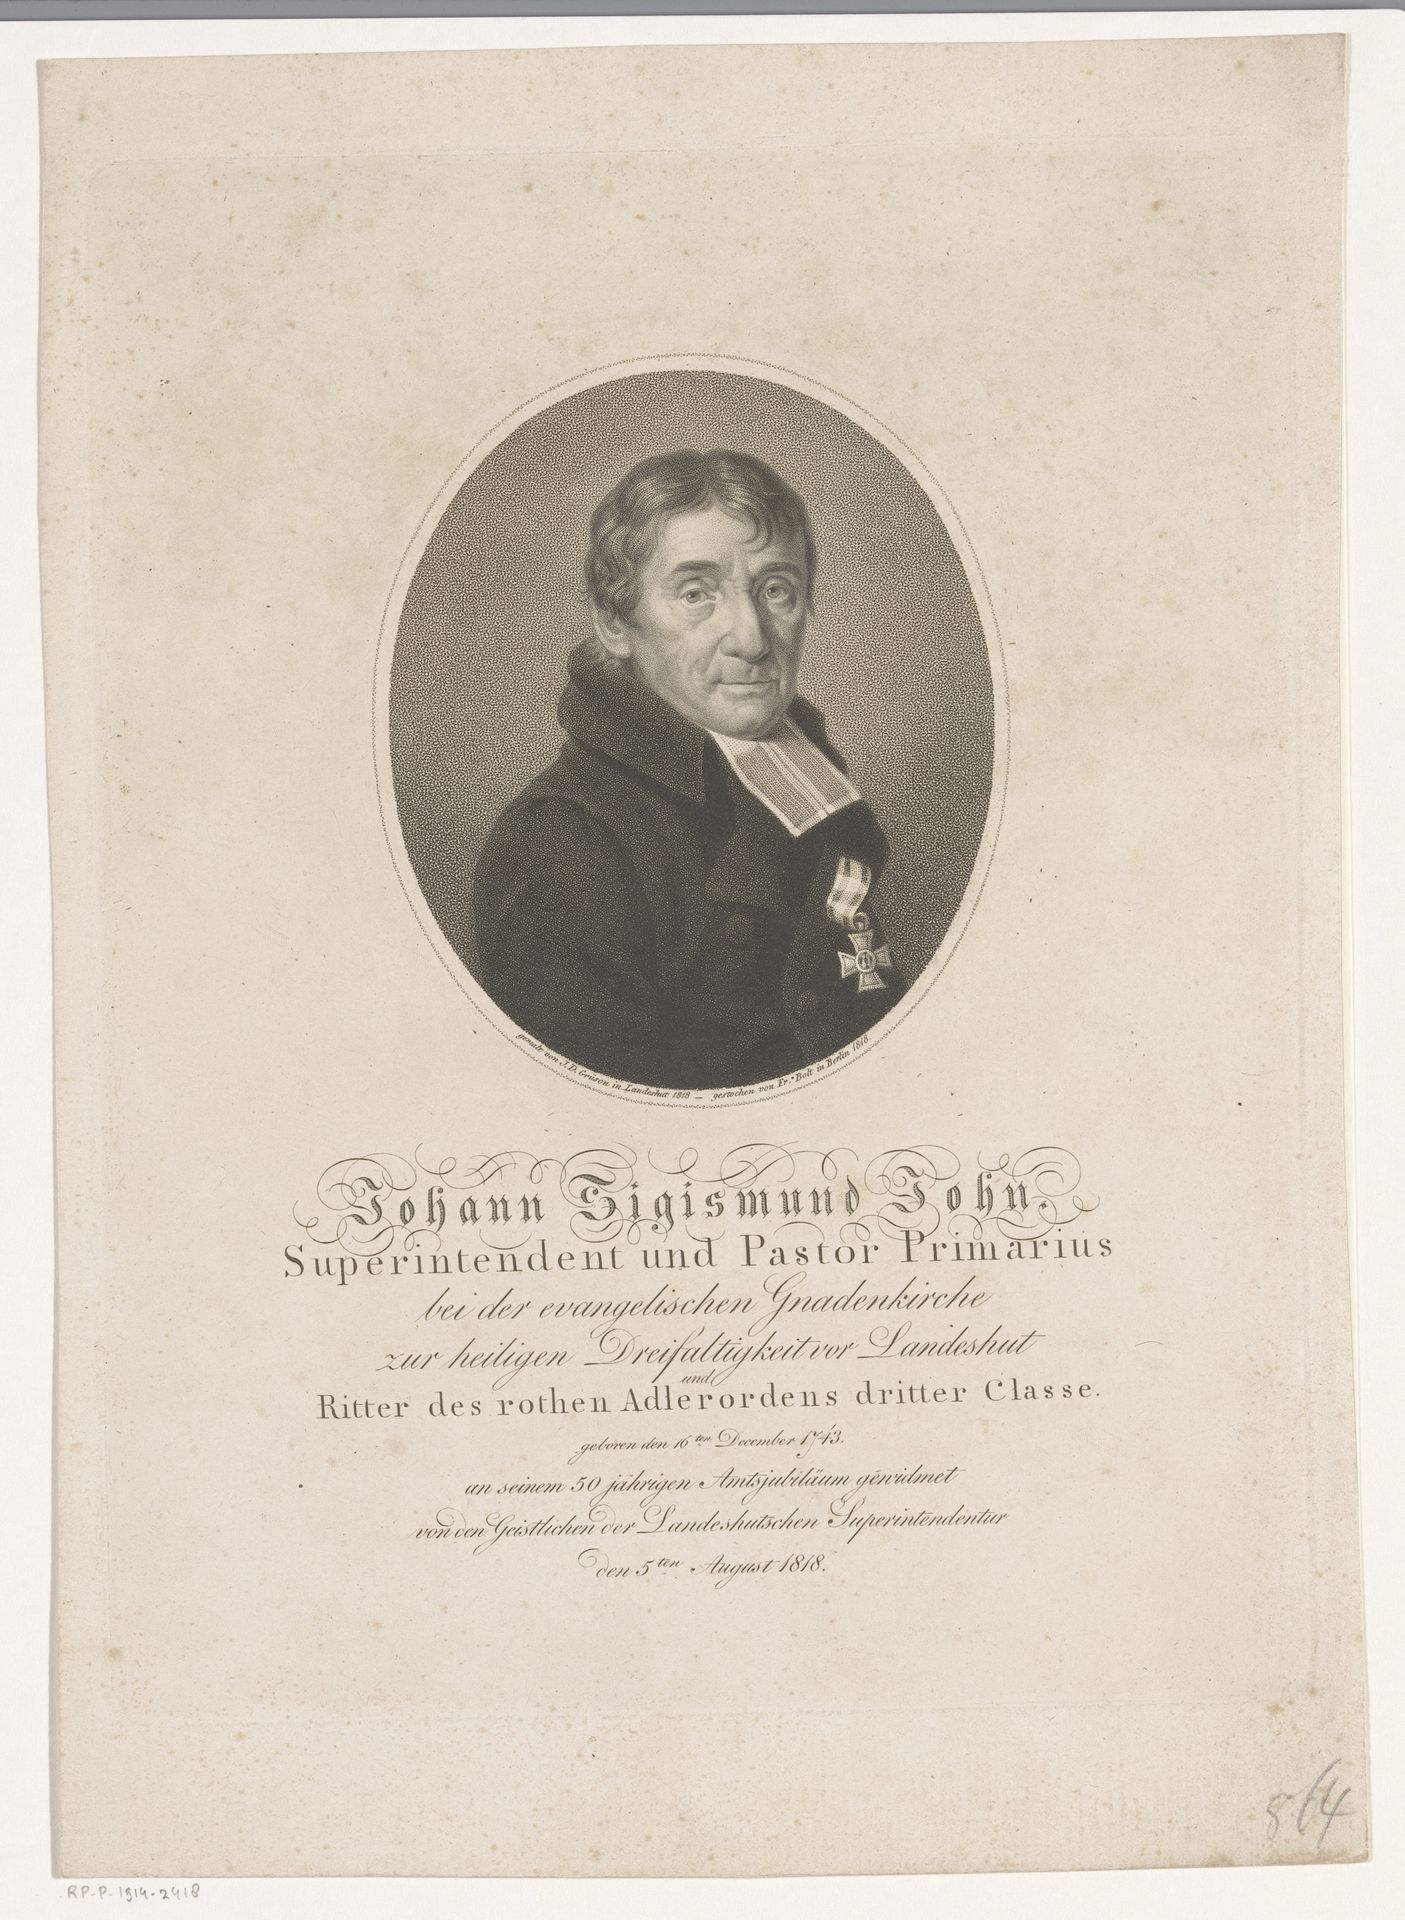 gemalt von J. D. Grüson in Landeshut 1818 — gestochen von Fr. Bolt in Berlin 1818.
Johann Sigismund John,
Superintendent und Pastor Primarius
bei der evangelischen Gnadenkirche
zur heiligen Dreifaltigkeit vor Landeshut
und
Ritter des rothen Adlerordens dritter Classe.
geboren den 16ten December 1743.
an seinem 50 jährigen Amtsjubiläum gewidmet
von den Geistlichen der Landeshutschen Superintendentur
den 5ten August 1818.
864
RP-P-1914-2418